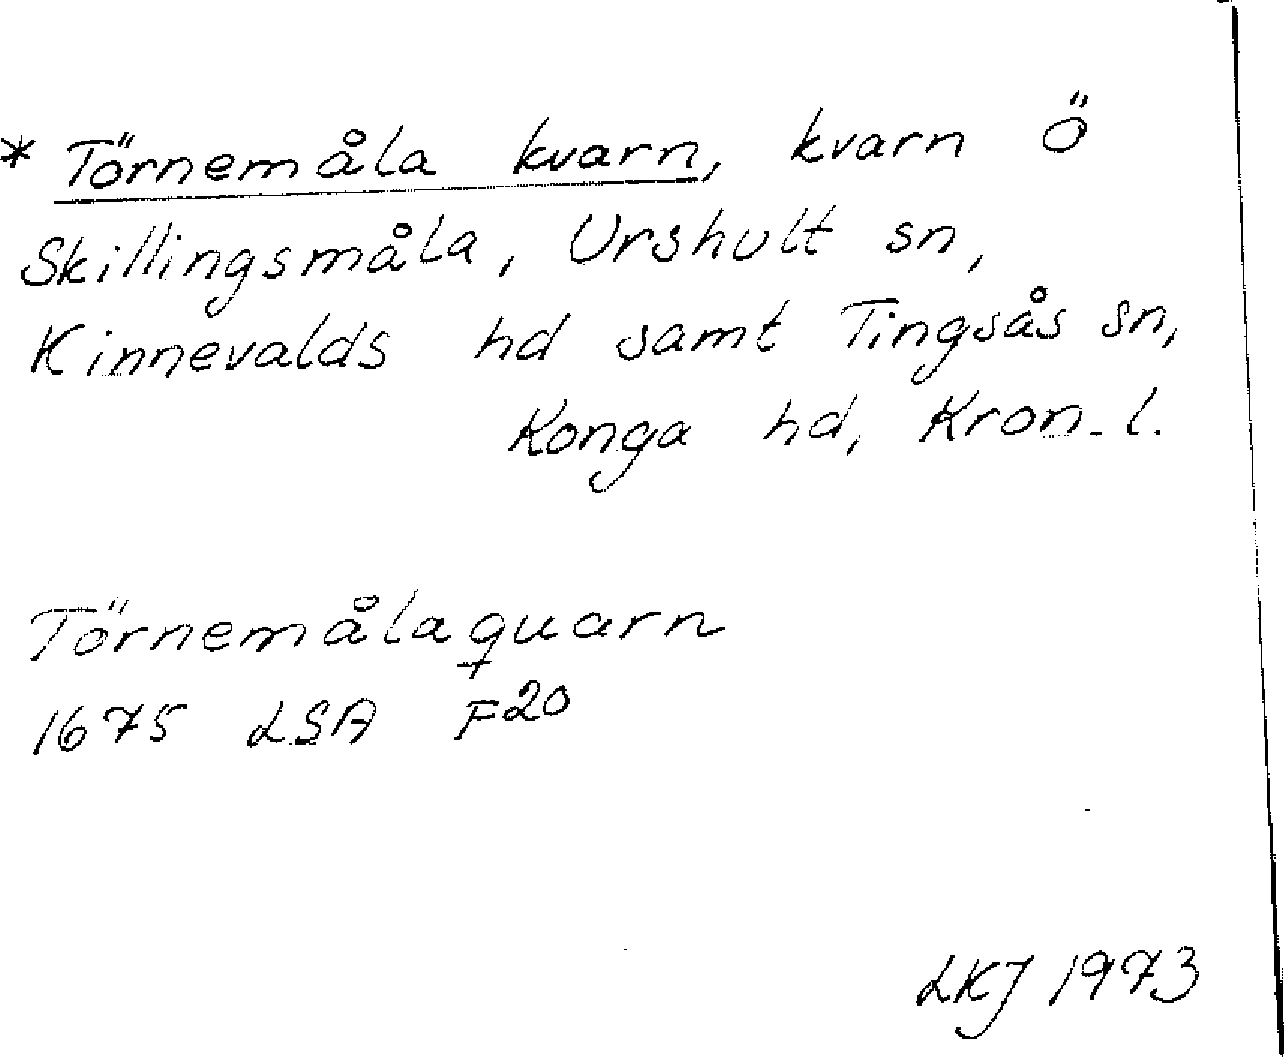 * Törnemåla kvarn, kvarn Ö
Skillingsmåla, Urshult sn,
Kinnevalds hd samt Tingsås sn,
Konga hd, Kron. l.
Törnemålaquarn
1675 LSA F20
LKJ 1973